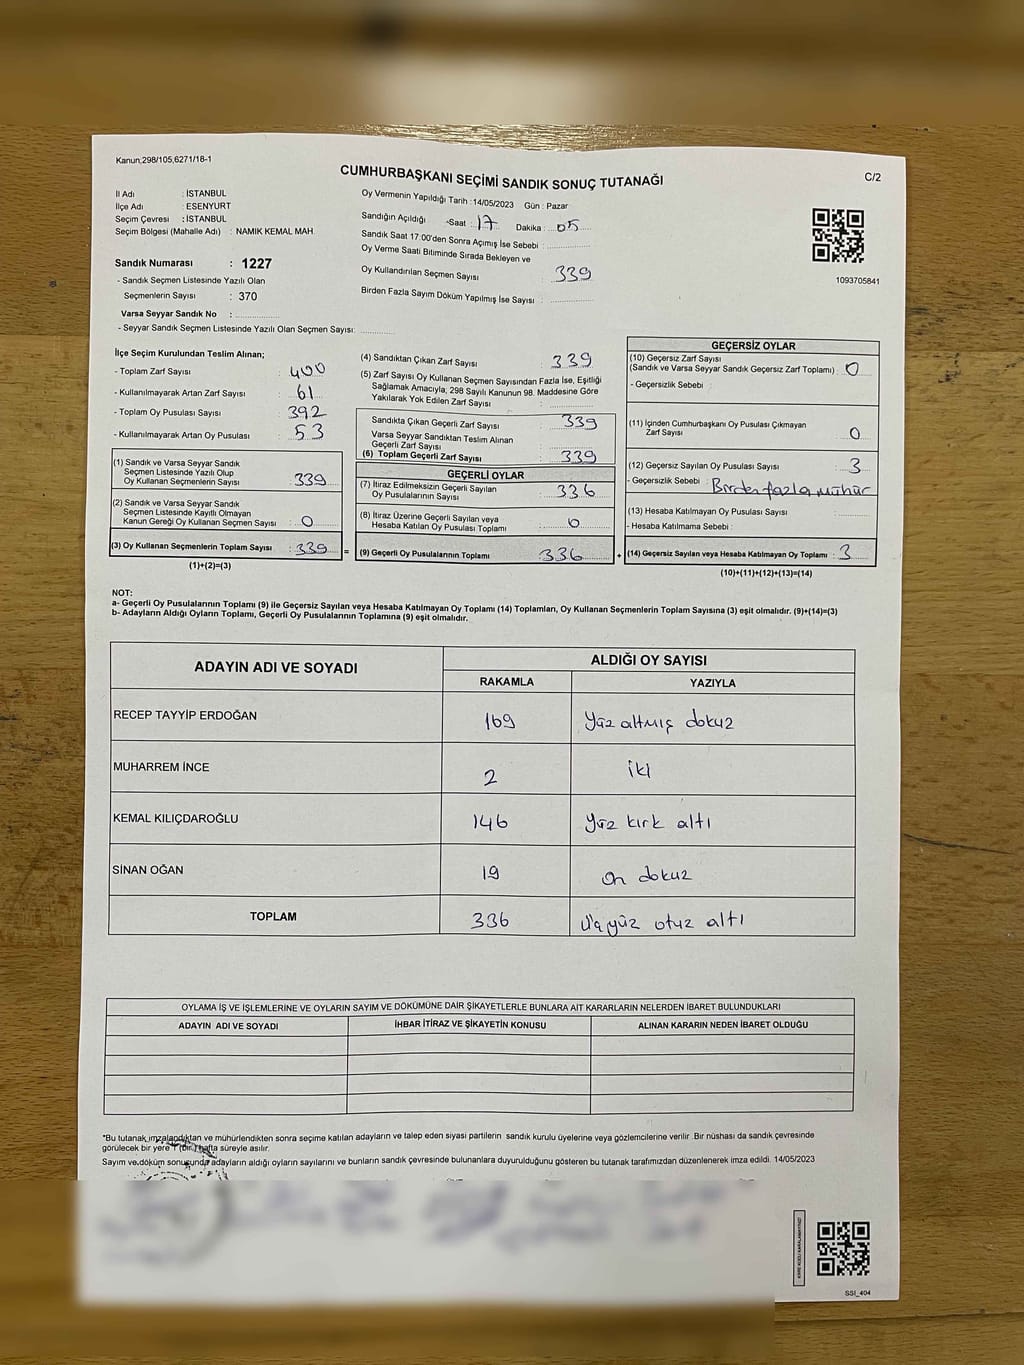 Kanun;298/105,6271/18-1
CUMHURBAŞKANI SEÇİMİ SANDIK SONUÇ TUTANAĞI
C/2
İl Adı : İSTANBUL
İlçe Adı : ESENYURT
Seçim Çevresi : İSTANBUL
Seçim Bölgesi (Mahalle Adı) : NAMIK KEMAL MAH.
Sandık Numarası : 1227
- Sandık Seçmen Listesinde Yazılı Olan
Seçmenlerin Sayısı : 370
Varsa Seyyar Sandık No :
- Seyyar Sandık Seçmen Listesinde Yazılı Olan Seçmen Sayısı:
Oy Vermenin Yapıldığı Tarih :14/05/2023 Gün : Pazar
Sandığın Açıldığı -Saat : 17 Dakika : 05
Sandık Saat 17:00'den Sonra Açımış İse Sebebi :
Oy Verme Saati Bitiminde Sırada Bekleyen ve
Oy Kullandırılan Seçmen Sayısı : 339
Birden Fazla Sayım Döküm Yapılmış İse Sayısı :
1093705841
İlçe Seçim Kurulundan Teslim Alınan;
- Toplam Zarf Sayısı : 400
- Kullanılmayarak Artan Zarf Sayısı : 61
- Toplam Oy Pusulası Sayısı : 392
- Kullanılmayarak Artan Oy Pusulası : 53
(1) Sandık ve Varsa Seyyar Sandık
Seçmen Listesinde Yazılı Olup
Oy Kullanan Seçmenlerin Sayısı : 339
(2) Sandık ve Varsa Seyyar Sandık
Seçmen Listesinde Kayıtlı Olmayan
Kanun Gereği Oy Kullanan Seçmen Sayısı : 0
(3) Oy Kullanan Seçmenlerin Toplam Sayısı : 339 =
(1)+(2)=(3)
(4) Sandıktan Çıkan Zarf Sayısı : 339
(5) Zarf Sayısı Oy Kullanan Seçmen Sayısından Fazla İse, Eşitliği
Sağlamak Amacıyla, 298 Sayılı Kanunun 98. Maddesine Göre
Yakılarak Yok Edilen Zarf Sayısı :
Sandıkta Çıkan Geçerli Zarf Sayısı : 339
Varsa Seyyar Sandıktan Teslim Alınan
Geçerli Zarf Sayısı :
(6) Toplam Geçerli Zarf Sayısı : 339
GEÇERLİ OYLAR
(7) İtiraz Edilmeksizin Geçerli Sayılan
Oy Pusulalarının Sayısı : 336
(8) İtiraz Üzerine Geçerli Sayılan veya
Hesaba Katılan Oy Pusulası Toplamı : 0
(9) Geçerli Oy Pusulalarının Toplamı : 336 +
GEÇERSİZ OYLAR
(10) Geçersiz Zarf Sayısı
(Sandık ve Varsa Seyyar Sandık Geçersiz Zarf Toplamı) : 0
- Geçersizlik Sebebi :
(11) İçinden Cumhurbaşkanı Oy Pusulası Çıkmayan
Zarf Sayısı : 0
(12) Geçersiz Sayılan Oy Pusulası Sayısı : 3
- Geçersizlik Sebebi : Birden fazla mühür
(13) Hesaba Katılmayan Oy Pusulası Sayısı :
- Hesaba Katılmama Sebebi :
(14) Geçersiz Sayılan veya Hesaba Katılmayan Oy Toplamı : 3
(10)+(11)+(12)+(13)=(14)
NOT:
a- Geçerli Oy Pusulalarının Toplamı (9) ile Geçersiz Sayılan veya Hesaba Katılmayan Oy Toplamı (14) Toplamları, Oy Kullanan Seçmenlerin Toplam Sayısına (3) eşit olmalıdır. (9)+(14)=(3)
b- Adayların Aldığı Oyların Toplamı, Geçerli Oy Pusulalarının Toplamına (9) eşit olmalıdır.
ADAYIN ADI VE SOYADI
ALDIĞI OY SAYISI
RAKAMLA YAZIYLA
RECEP TAYYİP ERDOĞAN 169 Yüz altmış dokuz
MUHARREM İNCE 2 iki
KEMAL KILIÇDAROĞLU 146 Yüz kırk altı
SİNAN OĞAN 19 on dokuz
TOPLAM 336 üçyüz otuz altı
OYLAMA İŞ VE İŞLEMLERİNE VE OYLARIN SAYIM VE DÖKÜMÜNE DAİR ŞİKAYETLERLE BUNLARA AİT KARARLARIN NELERDEN İBARET BULUNDUKLARI
ADAYIN ADI VE SOYADI İHBAR İTİRAZ VE ŞİKAYETİN KONUSU ALINAN KARARIN NEDEN İBARET OLDUĞU
*Bu tutanak imzalandıktan ve mühürlendikten sonra seçime katılan adayların ve talep eden siyasi partilerin sandık kurulu üyelerine veya gözlemcilerine verilir. Bir nüshası da sandık çevresinde
görülecek bir yere 1 (bir) hafta süreyle asılır.
Sayım ve döküm sonusunda adayların aldığı oyların sayılarını ve bunların sandık çevresinde bulunanlara duyurulduğunu gösteren bu tutanak tarafımızdan düzenlenerek imza edildi. 14/05/2023
SSI_404